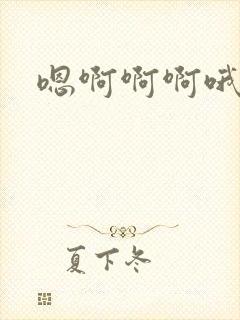 嗯啊啊啊哦
夏下冬